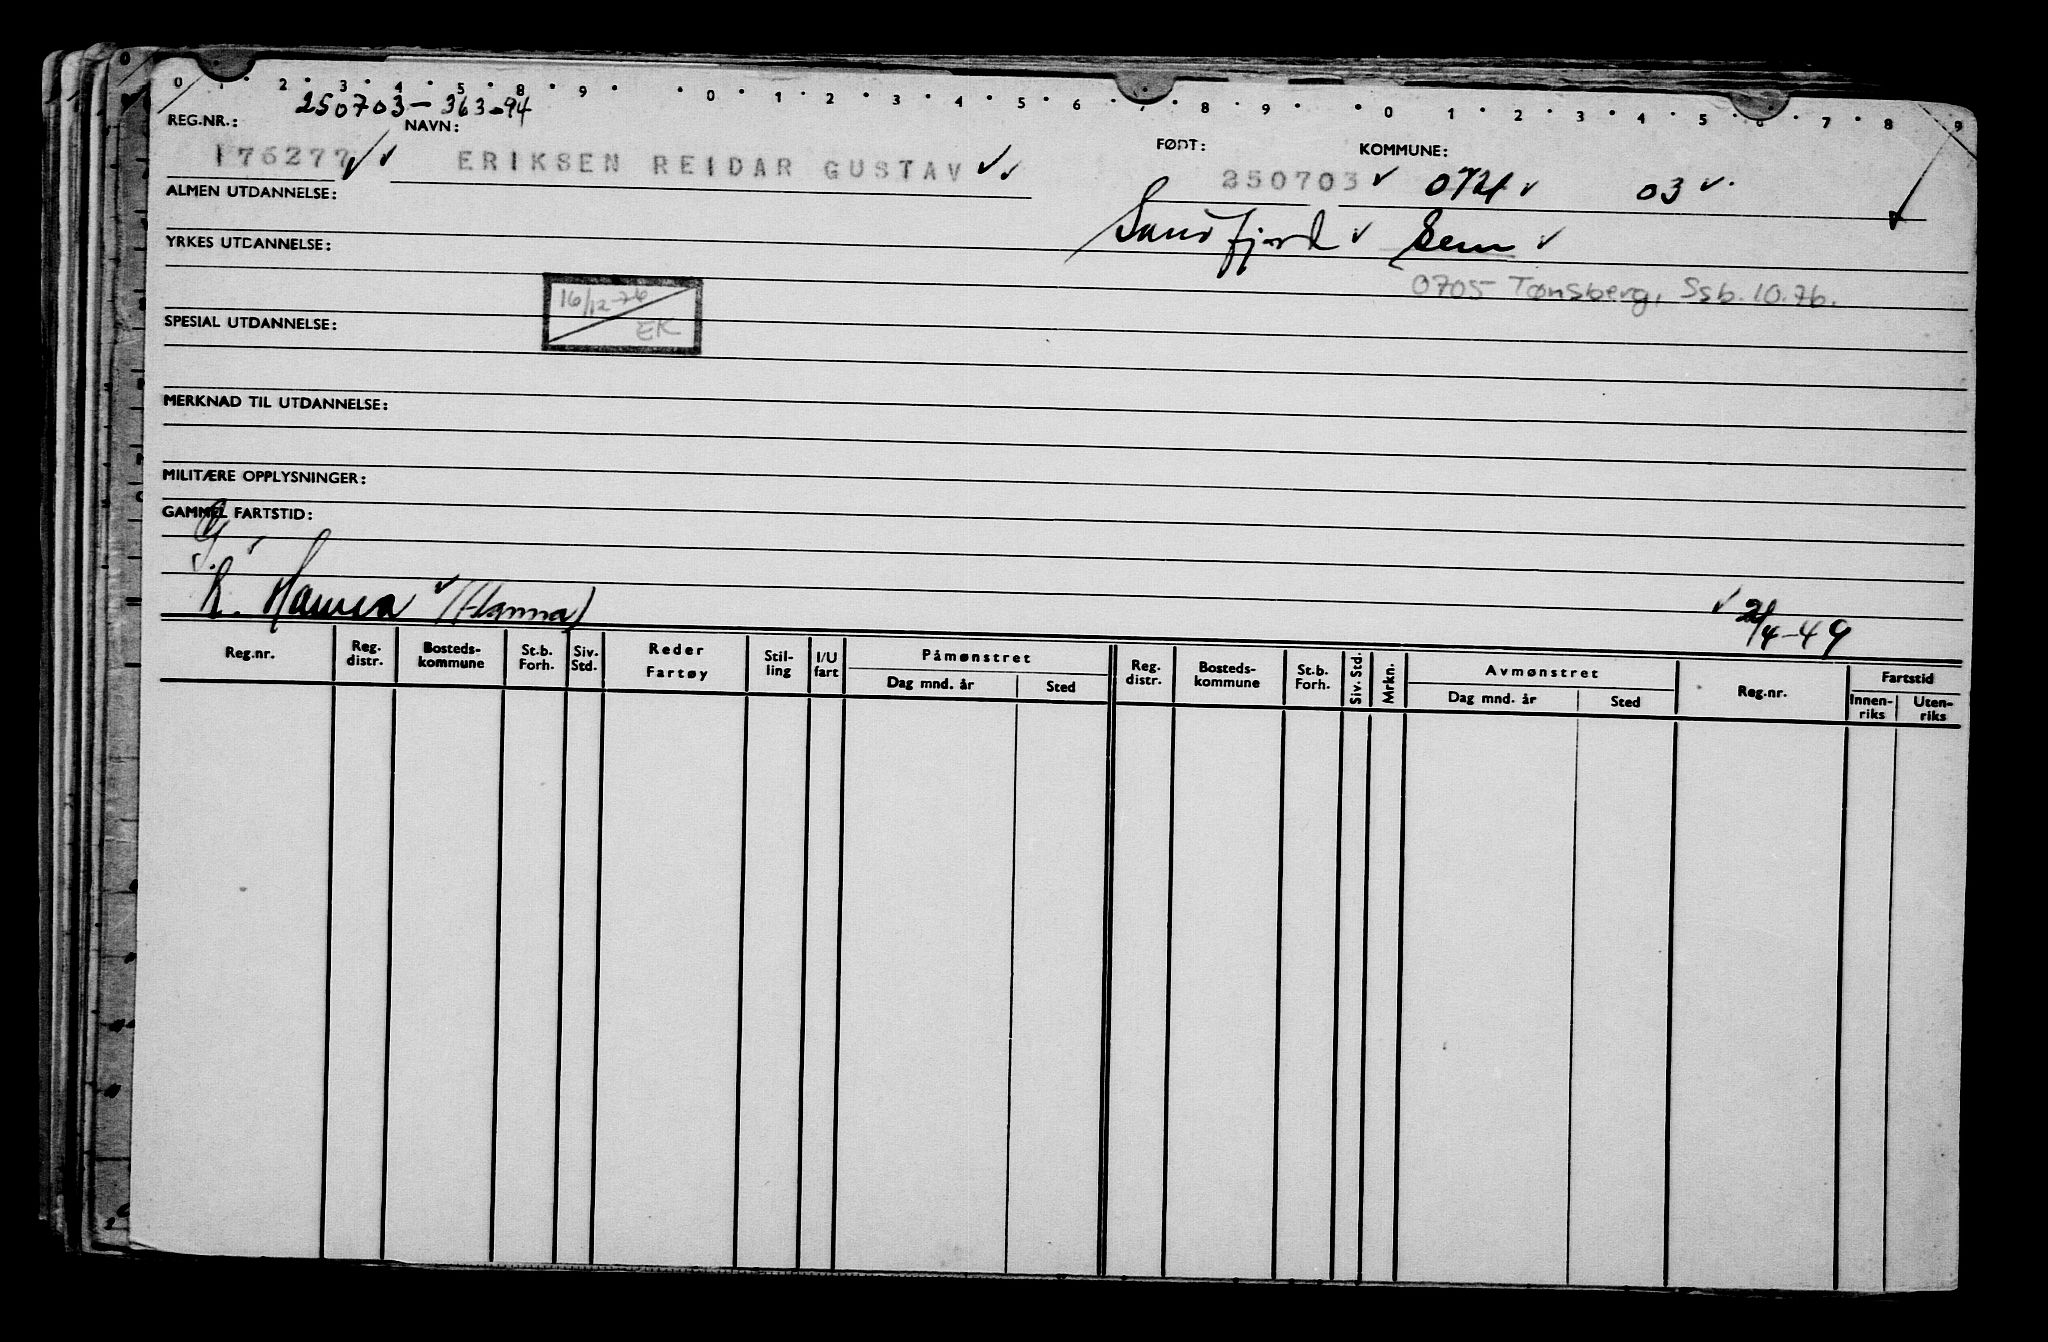 0 1 2 3 4 5 8 9 0 1 2 3 4 5 6 7 8 9 0 1 2 3 4 5 6 7 8 9
250703-363-94
REG.NR.: NAVN: FØDT: KOMMUNE:
176277 ERIKSEN REIDAR GUSTAV 250703 0721 03
ALMEN UTDANNELSE:
Sandefjord Sem
YRKES UTDANNELSE:
0705 Tønsberg, Ssb. 10.76.
16/12-76
EK
SPESIAL UTDANNELSE:
MERKNAD TIL UTDANNELSE:
MILITÆRE OPPLYSNINGER:
GAMMEL FARTSTID:
K. (Hanna) /4-49
Reg.nr. Reg. distr. Bosteds-kommune St.b. Forh. Siv. Std. Reder Fartøy Stil-ling I/U fart Påmønstret Dag mnd. år Sted Reg. distr. Bosteds-kommune St.b. Forh. Siv. Std. Mrkn. Avmønstret Dag mnd. år Sted Reg.nr. Fartstid Innen-riks Uten-riks